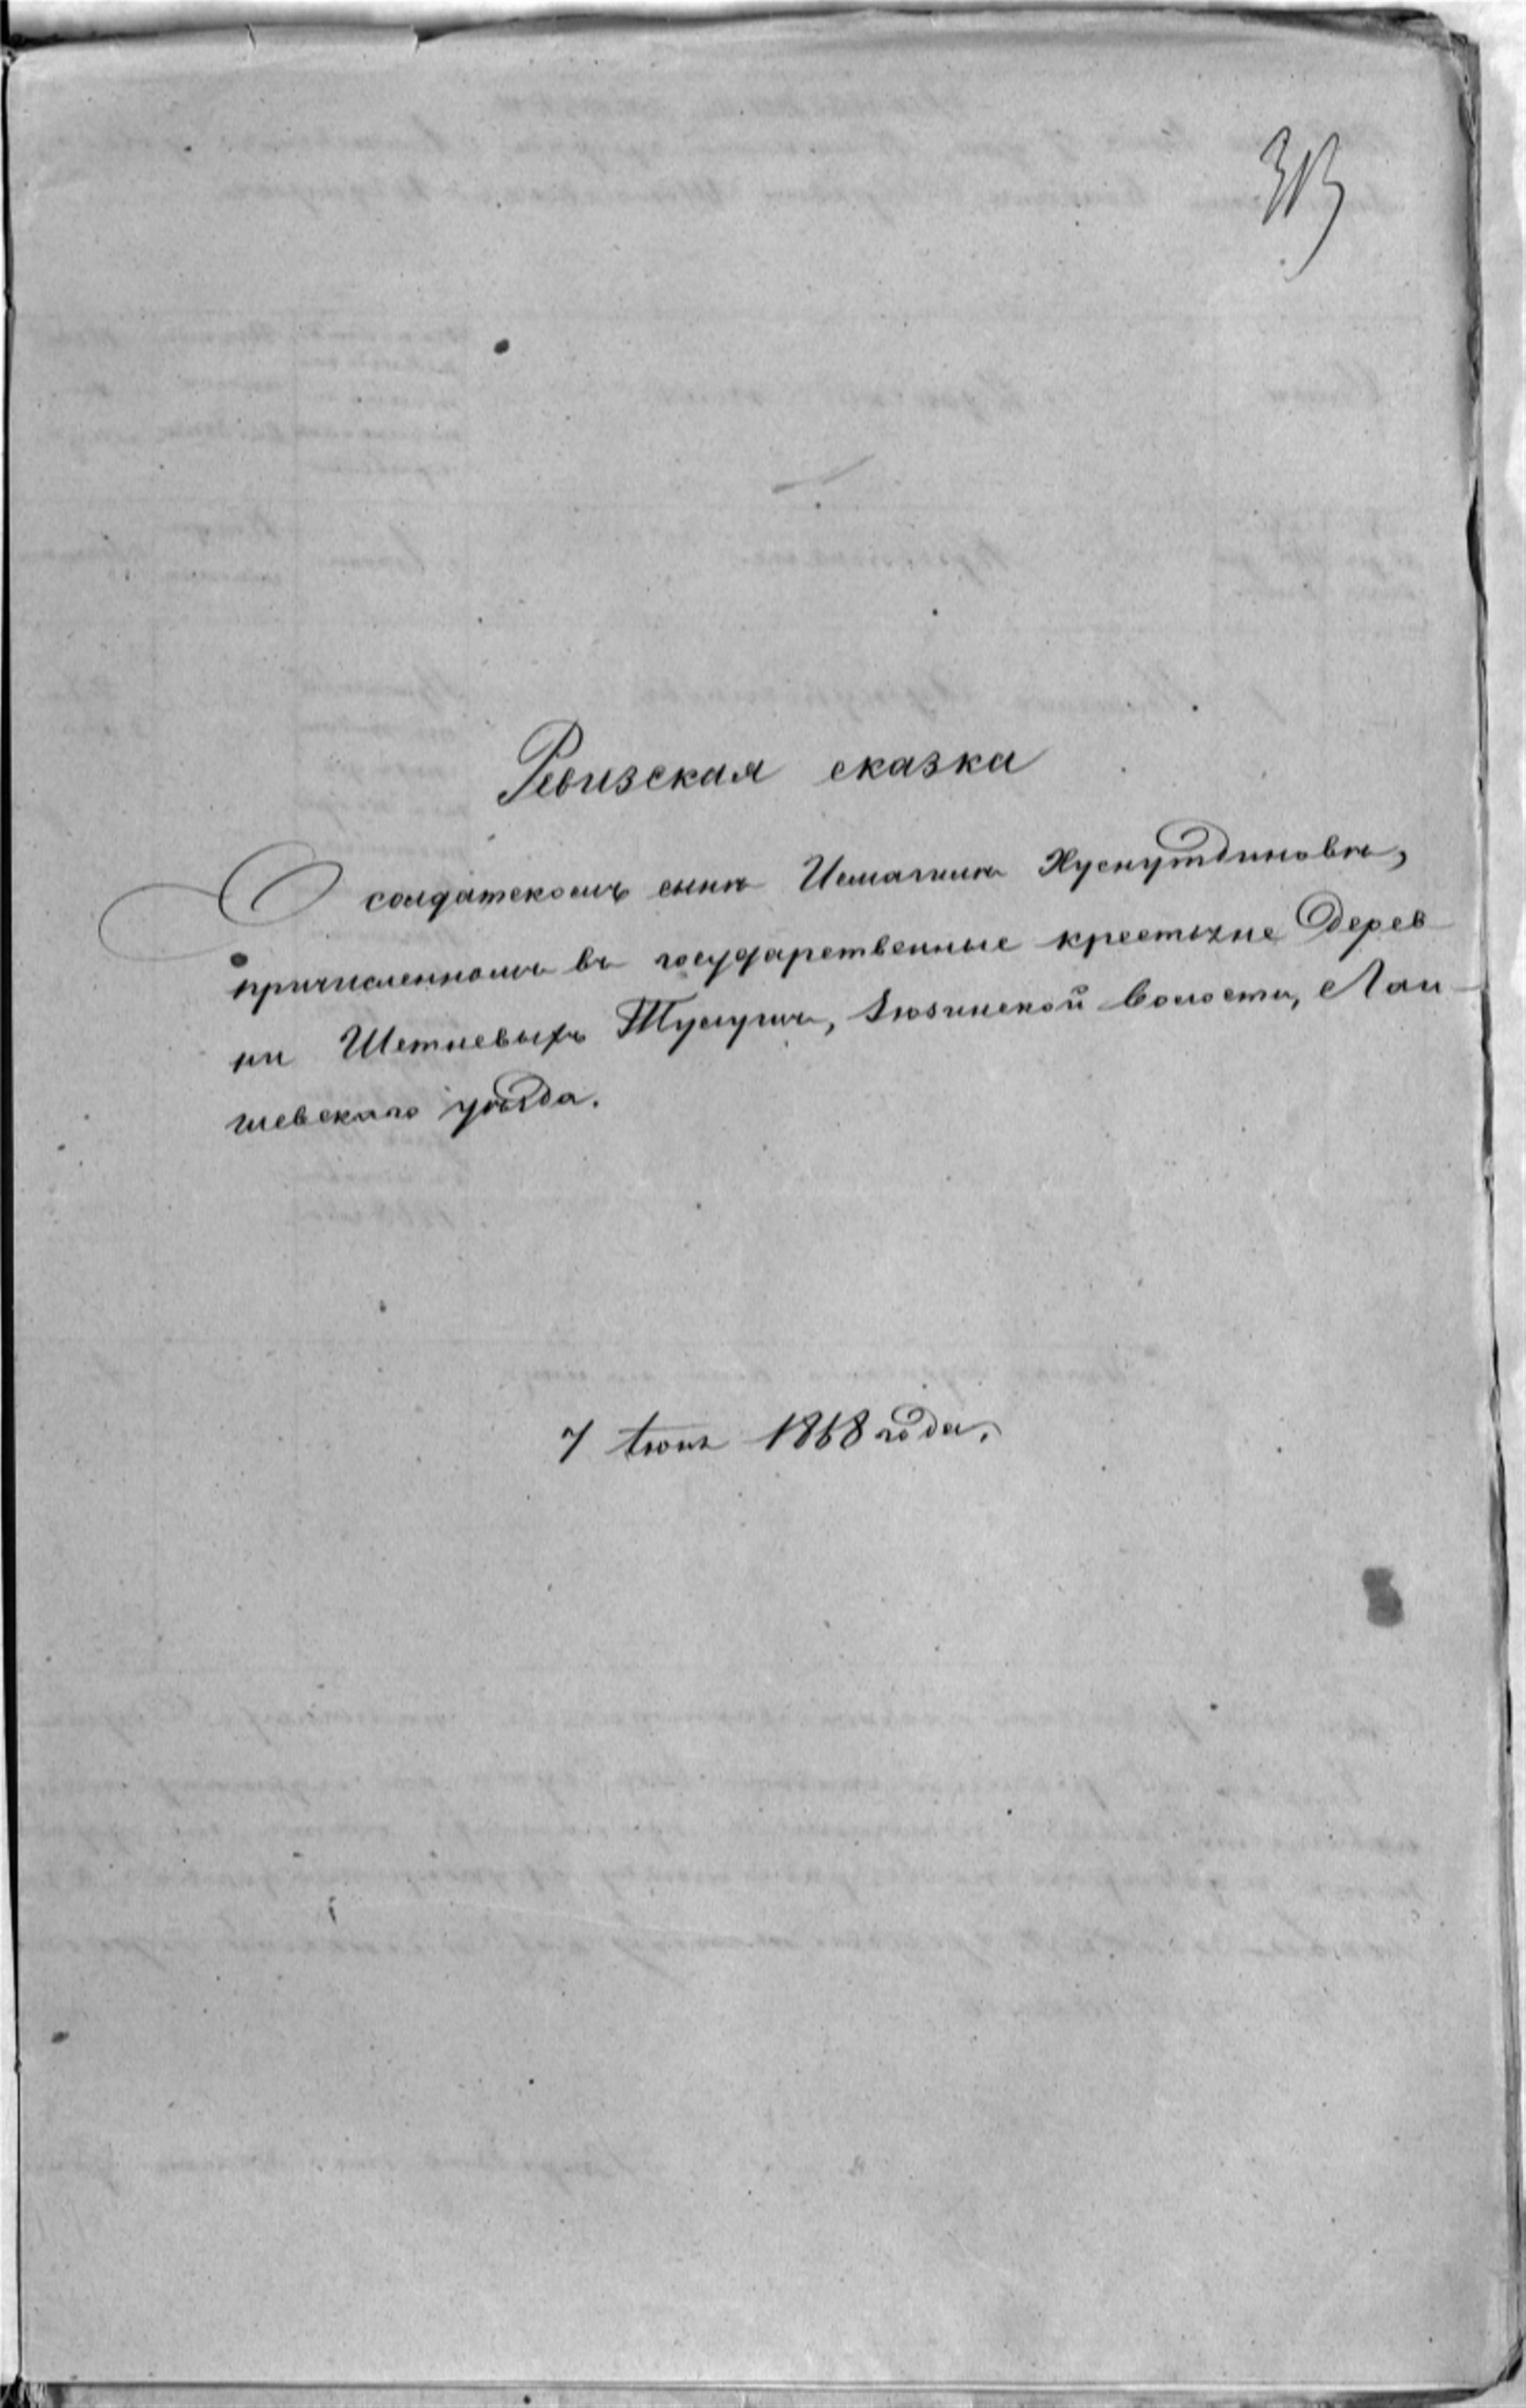 313
Ревизская сказка
О солдатскомъ сынѣ Исмагилѣ Хуснутдиновѣ,
причисленномъ въ государственные крестьяне Дерев
ни Шетневыхъ Тулушъ, Кюзинской волости, Лаи-
шевскаго уѣзда.
7 Іюня 1868 года.